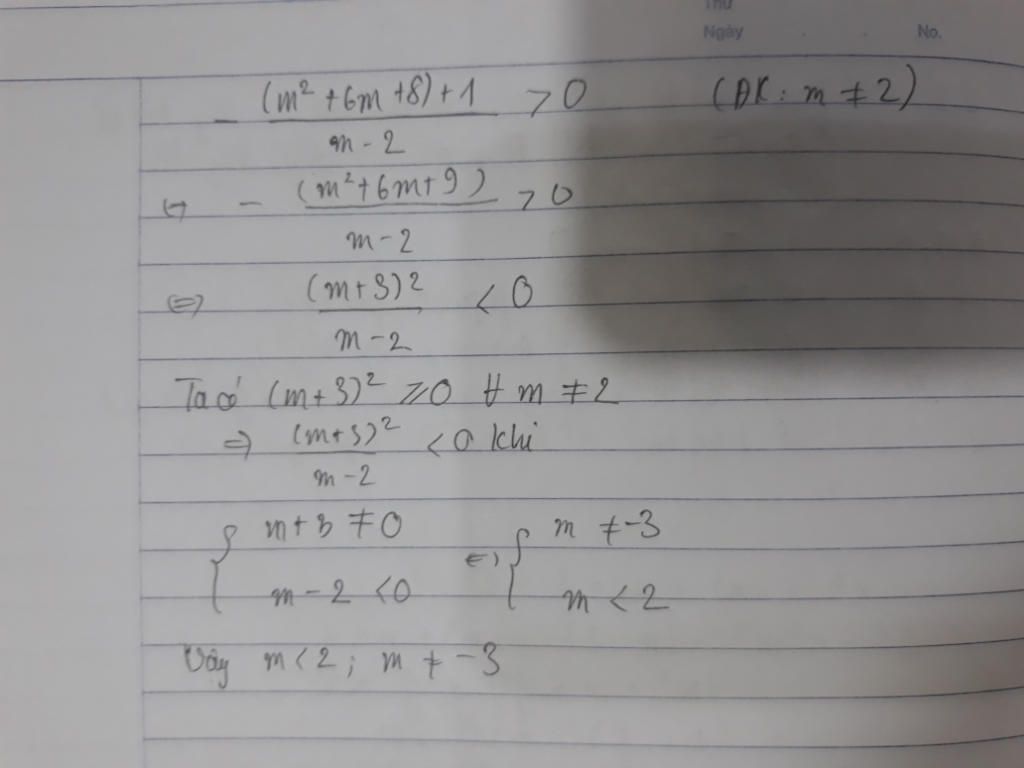 Thứ
Ngày . . No.
- \frac{(m² + 6m + 8) + 1}{m - 2} > 0 (ĐK: m ≠ 2)
↔ - \frac{(m² + 6m + 9)}{m - 2} > 0
⇔ \frac{(m + 3)²}{m - 2} < 0
Ta có (m + 3)² ⩾ 0 ∀ m ≠ 2
⇒ \frac{(m + 3)²}{m - 2} < 0 khi
{ m + 3 ≠ 0 ⇔ { m ≠ -3
m - 2 < 0 m < 2
Vậy m < 2 ; m ≠ -3